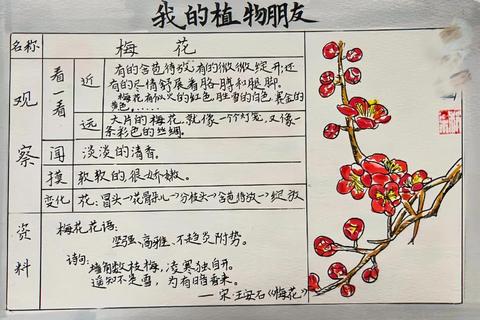 我的植物朋友
名称
梅 花
观察
看一看
近
有的含苞待放;有的微微绽开;还
有的尽情舒展着胳膊和腿脚。
梅花有似火的红色,胜雪的白色,赛金的
黄色……
远
大片的梅花就像一个灯笼,又像一
条彩色的丝绸。
闻
淡淡的清香。
摸
软软的很娇嫩。
变化
花:冒头→花骨朵儿→分枝头→含苞待放→绽放
资料
梅花花语:
坚强、高雅、不趋炎附势。
诗句:墙角数枝梅,凌寒独自开。
遥知不是雪,为有暗香来。
——宋·王安石《梅花》